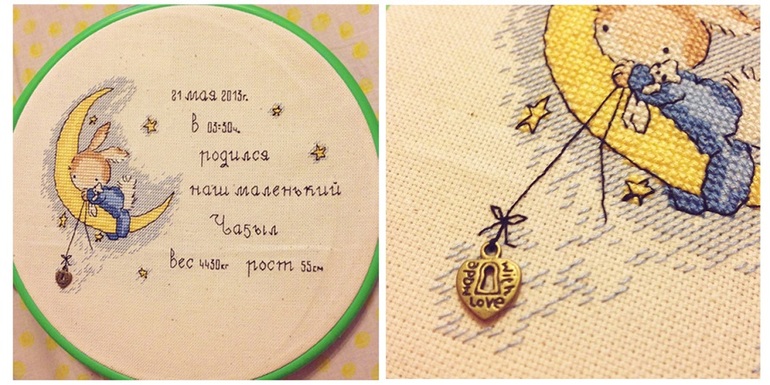 21 мая 2013г.
в 03:30ч.
родился
наш маленький
Чаҕыл
вес 4430кг рост 55см
OPEN with
Love